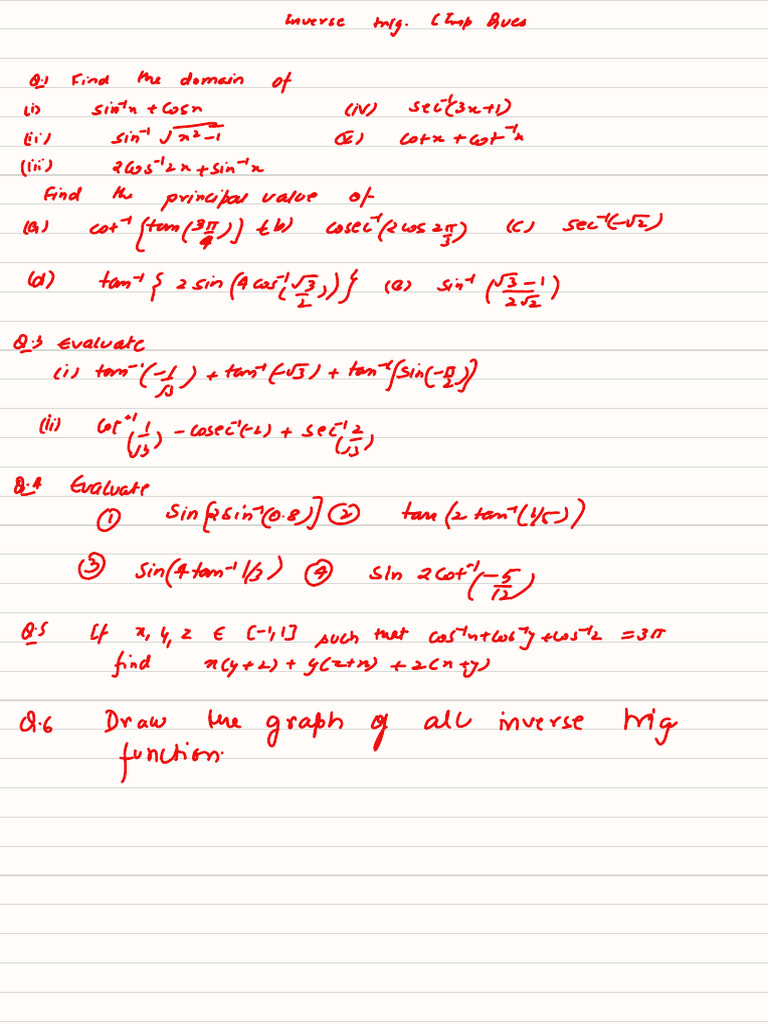 Inverse trig. (Imp Ques
Q.1 Find the domain of
(i) sin⁻¹x + cosx (iv) sec⁻¹(3x+1)
(ii) sin⁻¹ √(x²-1) (v) cotx + cot⁻¹x
(iii) 2cos⁻¹2x + sin⁻¹x
Find the principal value of
(a) cot⁻¹[tan(3π/4)] (b) cosec⁻¹(2cos 2π/3) (c) sec⁻¹(-√2)
(d) tan⁻¹{2 sin(4cos⁻¹(√3/2))} (e) sin⁻¹((√3-1)/2√2)
Q.3 Evaluate
(i) tan⁻¹(-1/√3) + tan⁻¹(-√3) + tan⁻¹[sin(-π/2)]
(ii) cot⁻¹(1/√3) - cosec⁻¹(-2) + sec⁻¹(2/√3)
Q.4 Evaluate
① sin[2sin⁻¹(0.8)] ② tan(2 tan⁻¹(1/5))
③ sin(4tan⁻¹ 1/3) ④ sin 2cot⁻¹(-5/12)
Q.5 If x, y, z ∈ [-1,1] such that cos⁻¹x+cos⁻¹y+cos⁻¹z = 3π
find x(y+z) + y(z+x) + z(x+y)
Q.6 Draw the graph of all inverse trig
function.